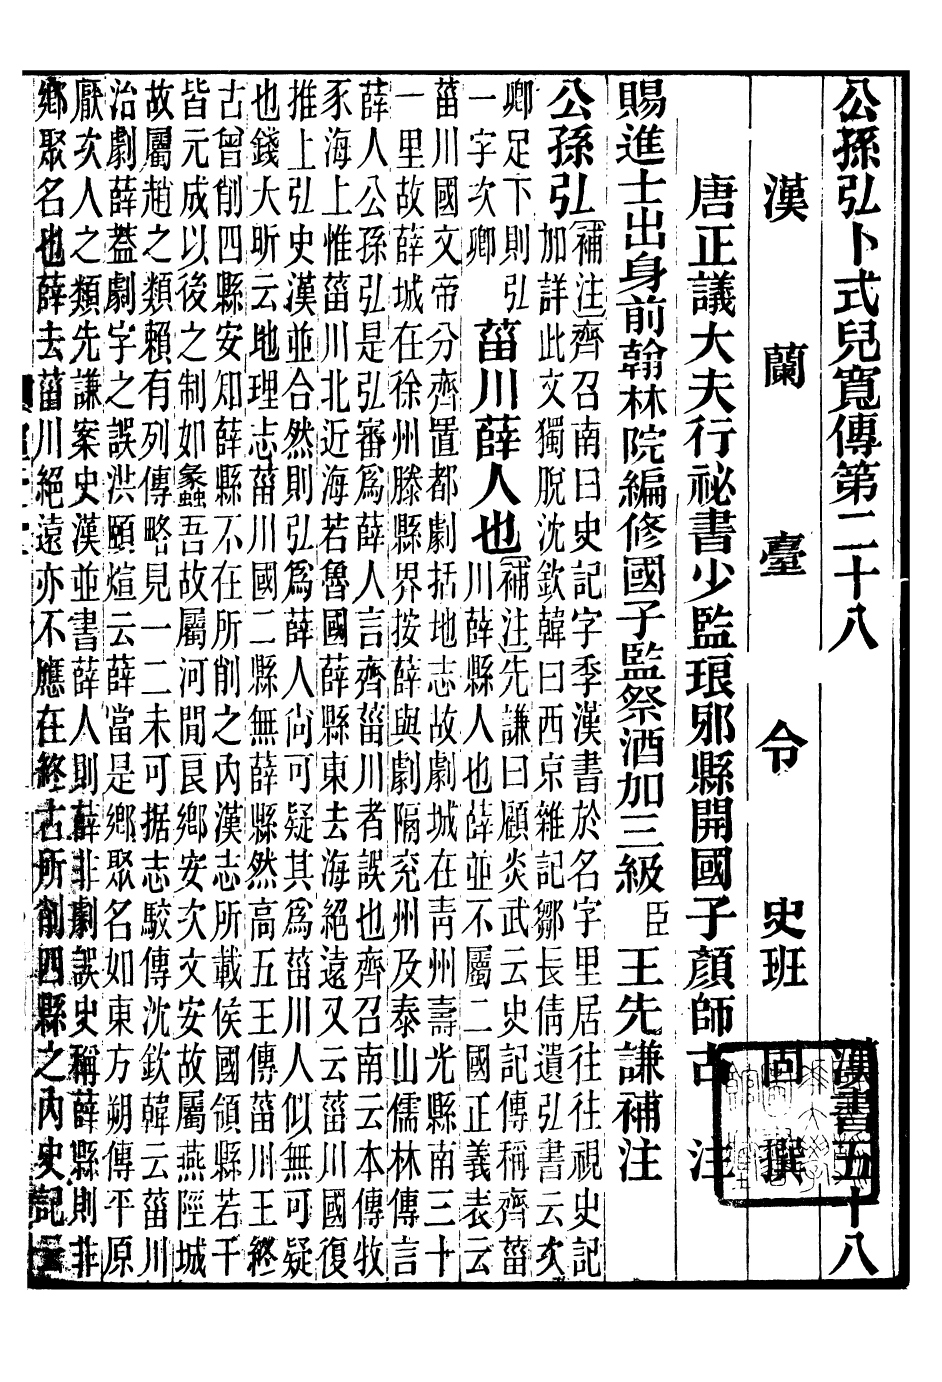 公孫弘卜式兒寬傳第二十八　漢書五十八
漢蘭臺令史班固撰
唐正議大夫行祕書少監琅邪縣開國子顏師古注
賜進士出身前翰林院編修國子監祭酒加三級臣王先謙補注
公孫弘補注齊召南曰史記字季漢書於名字里居往往視史記
加詳此文獨脫沈欽韓曰西京雜記鄒長倩遺弘書云次
卿足下則弘
一字次卿
菑川薛人也補注先謙曰顧炎武云史記傳稱齊菑
川薛縣人也薛並不屬二國正義表云
菑川國文帝分齊置都劇括地志故劇城在青州壽光縣南三十
一里故薛城在徐州滕縣界按薛與劇隔兗州及泰山儒林傳言
薛人公孫弘是弘審爲薛人言齊菑川者誤也齊召南云本傳牧
豕海上惟菑川北近海若魯國薛縣東去海絕遠又云菑川國復
推上弘史漢並合然則弘爲薛人尙可疑其爲菑川人似無可疑
也錢大昕云地理志菑川國二縣無薛縣然高五王傳菑川王終
古曾削四縣安知薛縣不在所削之內漢志所載侯國領縣若干
皆元成以後之制如蠡吾故屬河閒良鄉安次文安故屬燕陘城
故屬趙之類賴有列傳略見一二未可据志駮傳沈欽韓云菑川
治劇薛蓋劇字之誤洪頤煊云薛當是鄉聚名如東方朔傳平原
厭次人之類先謙案史漢並書薛人則薛非劇誤史稱薛縣則非
鄉聚名也薛去菑川絕遠亦不應在終古所削四縣之內史記